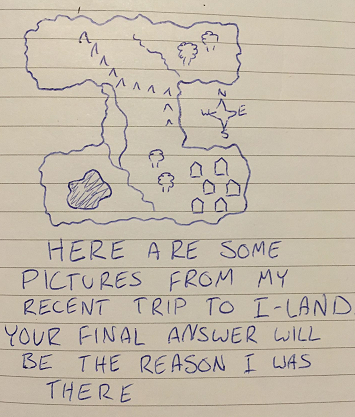 N
W E
S
HERE ARE SOME
PICTURES FROM MY
RECENT TRIP TO I-LAND
YOUR FINAL ANSWER WILL
BE THE REASON I WAS
THERE